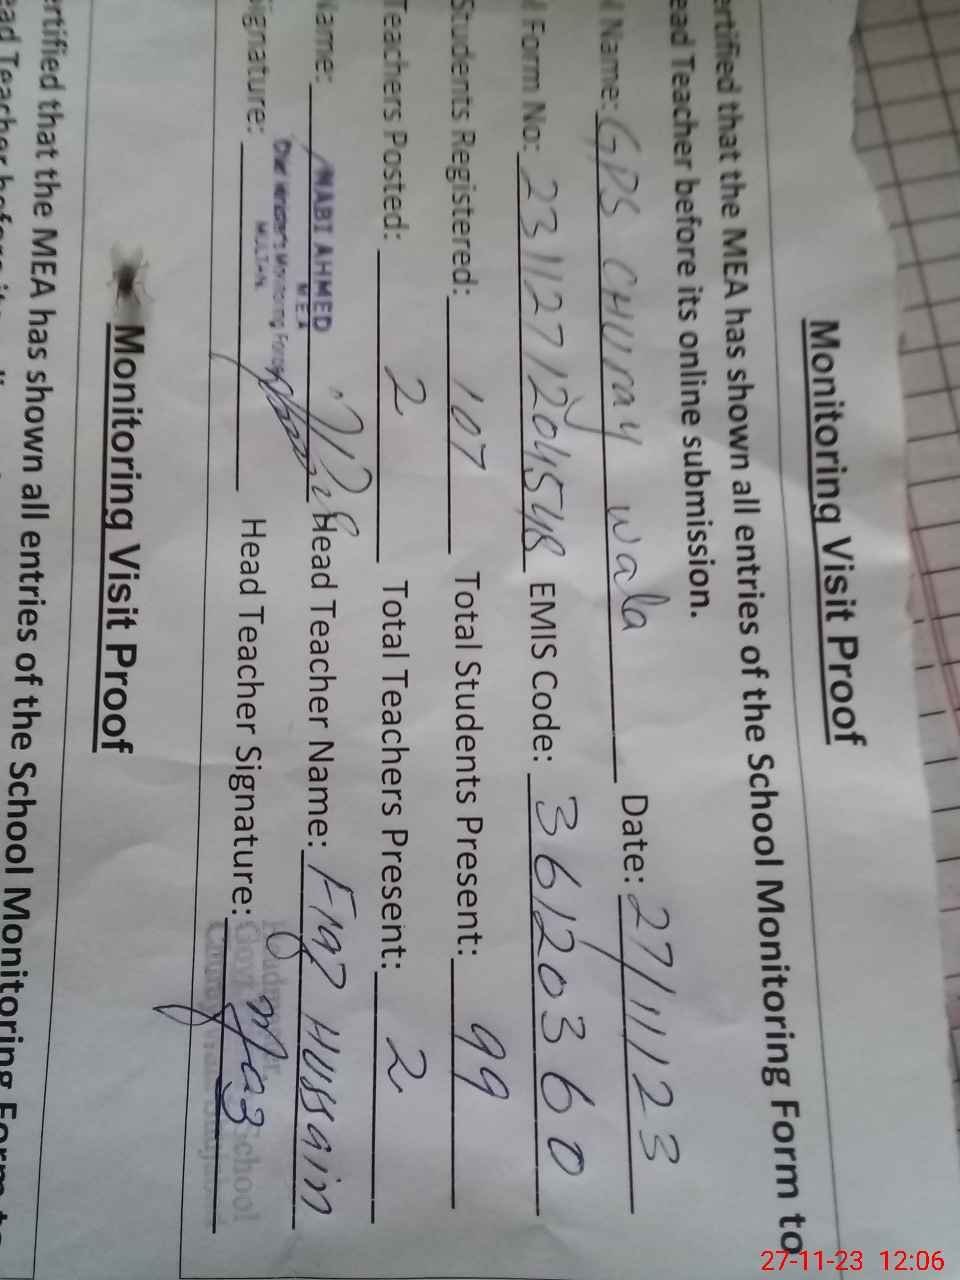 Monitoring Visit Proof
ertified that the MEA has shown all entries of the School Monitoring Form to
ead Teacher before its online submission.
l Name: GPS Churay wala Date: 27/11/23
l Form No: 2311271204548 EMIS Code: 36120360
Students Registered: 107 Total Students Present: 99
Teachers Posted: 2 Total Teachers Present: 2
Name: NABI AHMED Head Teacher Name: Fiaz Hussain
MEA
MULTAN
Signature: Head Teacher Signature:
Monitoring Visit Proof
ertified that the MEA has shown all entries of the School Monitoring Form to
ead Teacher before its
27-11-23 12:06